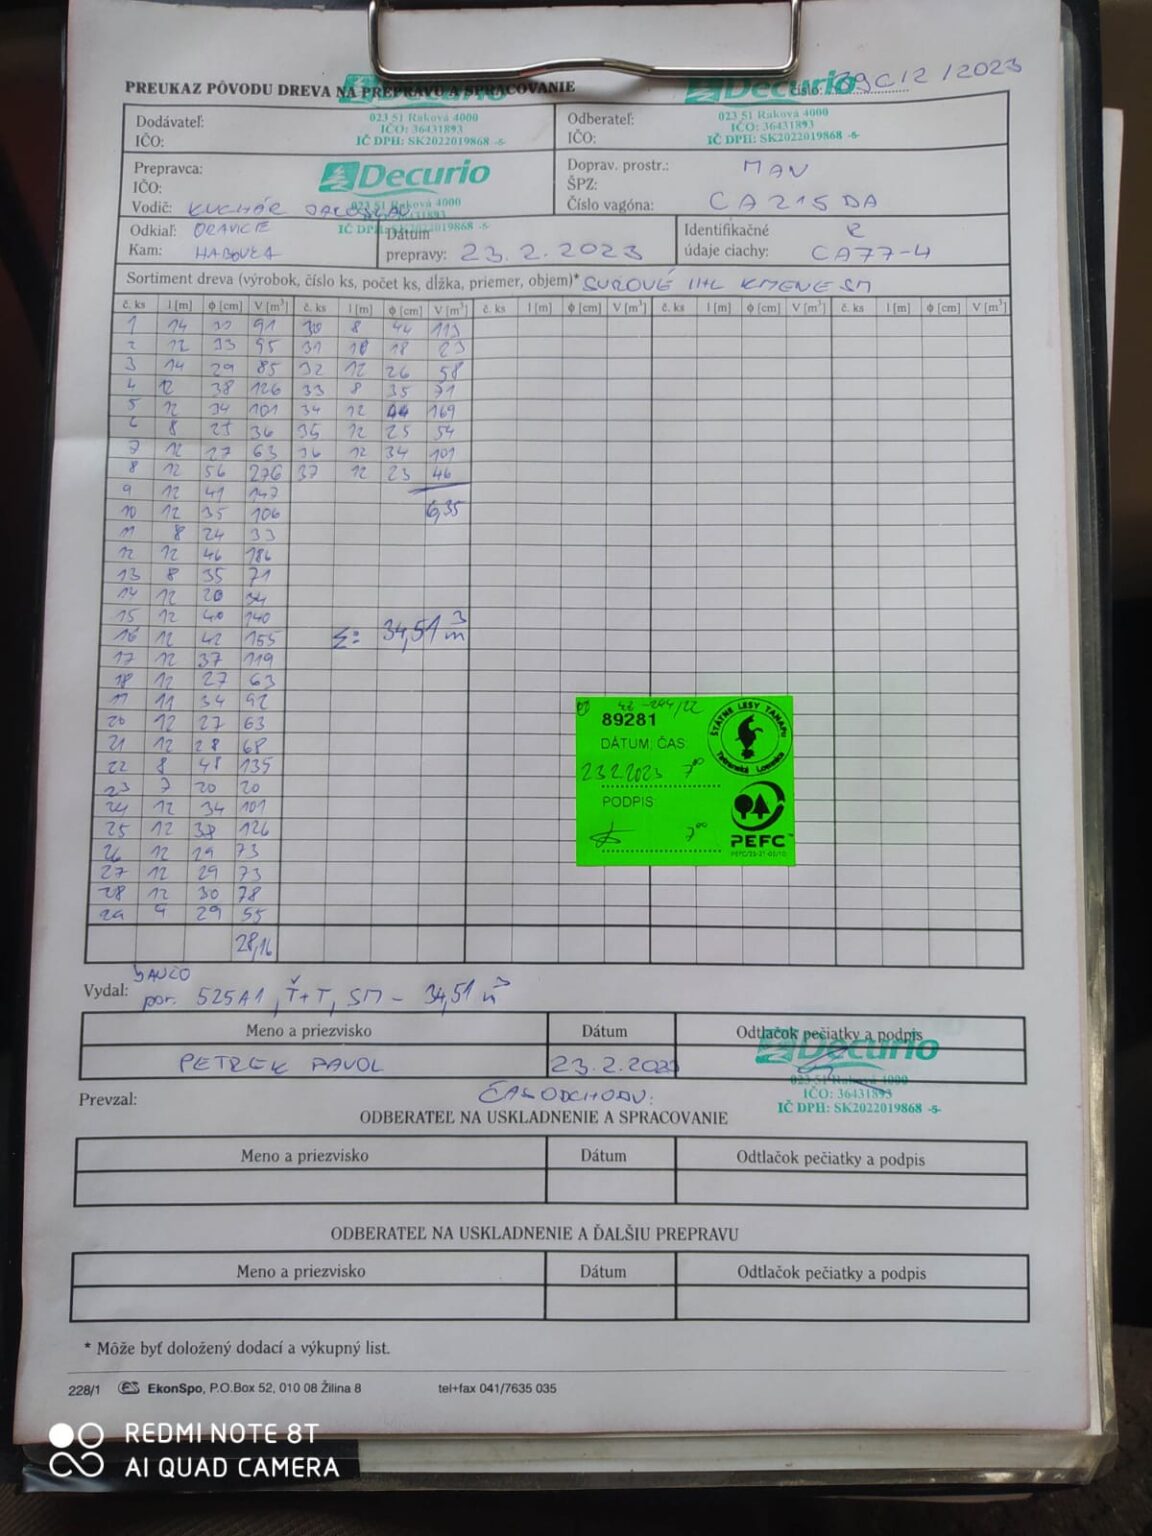 PREUKAZ PÔVODU DREVA NA PREPRAVU A SPRACOVANIE
Decurio
číslo: 39C12/2023
Dodávateľ:
IČO:
023 51 Raková 4000
IČO: 36431893
IČ DPH: SK2022019868 -5-
Odberateľ:
IČO:
023 51 Raková 4000
IČO: 36431893
IČ DPH: SK2022019868 -5-
Prepravca:
IČO:
Vodič: KUCHÁR JAROSLAV
Decurio
023 51 Raková 4000
Doprav. prostr.: MAN
ŠPZ:
Číslo vagóna: CA215DA
Odkiaľ: ORAVICE
Kam: HABOVKA
Dátum
prepravy: 23.2.2023
Identifikačné
údaje ciachy: CA77-4
Sortiment dreva (výrobok, číslo ks, počet ks, dĺžka, priemer, objem)* SUROVÉ IHL KMENE SM
č. ks l [m] ϕ [cm] V [m³] č. ks l [m] ϕ [cm] V [m³] č. ks l [m] ϕ [cm] V [m³] č. ks l [m] ϕ [cm] V [m³] č. ks l [m] ϕ [cm] V [m³]
1 14 30 91 30 8 44 113
2 12 33 95 31 10 18 23
3 14 29 85 32 12 26 58
4 12 38 126 33 8 35 71
5 12 34 101 34 12 44 169
6 8 25 36 35 12 25 54
7 12 27 63 36 12 34 101
8 12 56 276 37 12 23 46
9 12 41 147
10 12 35 106 6,35
11 8 24 33
12 12 46 186
13 8 35 71
14 12 20 34
15 12 40 140
16 12 42 155 Σ: 34,51 m³
17 12 37 119
18 12 27 63
19 11 34 92
20 12 27 63
21 12 28 68
22 8 48 135
23 7 20 20
24 12 34 101
25 12 38 126
26 12 29 73
27 12 29 73
28 12 30 78
29 9 29 55
28,16
89281
ŠTÁTNE LESY TANAPu
Tatranská Lomnica
DÁTUM, ČAS
23.2.2023 7⁰⁰
PODPIS
7⁰⁰
PEFC™
Vydal:
por. 525A1, Ť+T, SM - 34,51 m³
Meno a priezvisko Dátum Odtlačok pečiatky a podpis
PETREK PAVOL 23.2.2023
Decurio
023 51 Raková 4000
IČO: 36431893
IČ DPH: SK2022019868 -5-
Prevzal:
ČAS ODCHODU:
ODBERATEĽ NA USKLADNENIE A SPRACOVANIE
Meno a priezvisko Dátum Odtlačok pečiatky a podpis
ODBERATEĽ NA USKLADNENIE A ĎALŠIU PREPRAVU
Meno a priezvisko Dátum Odtlačok pečiatky a podpis
* Môže byť doložený dodací a výkupný list.
228/1 EkonSpo, P.O.Box 52, 010 08 Žilina 8 tel+fax 041/7635 035
REDMI NOTE 8T
AI QUAD CAMERA